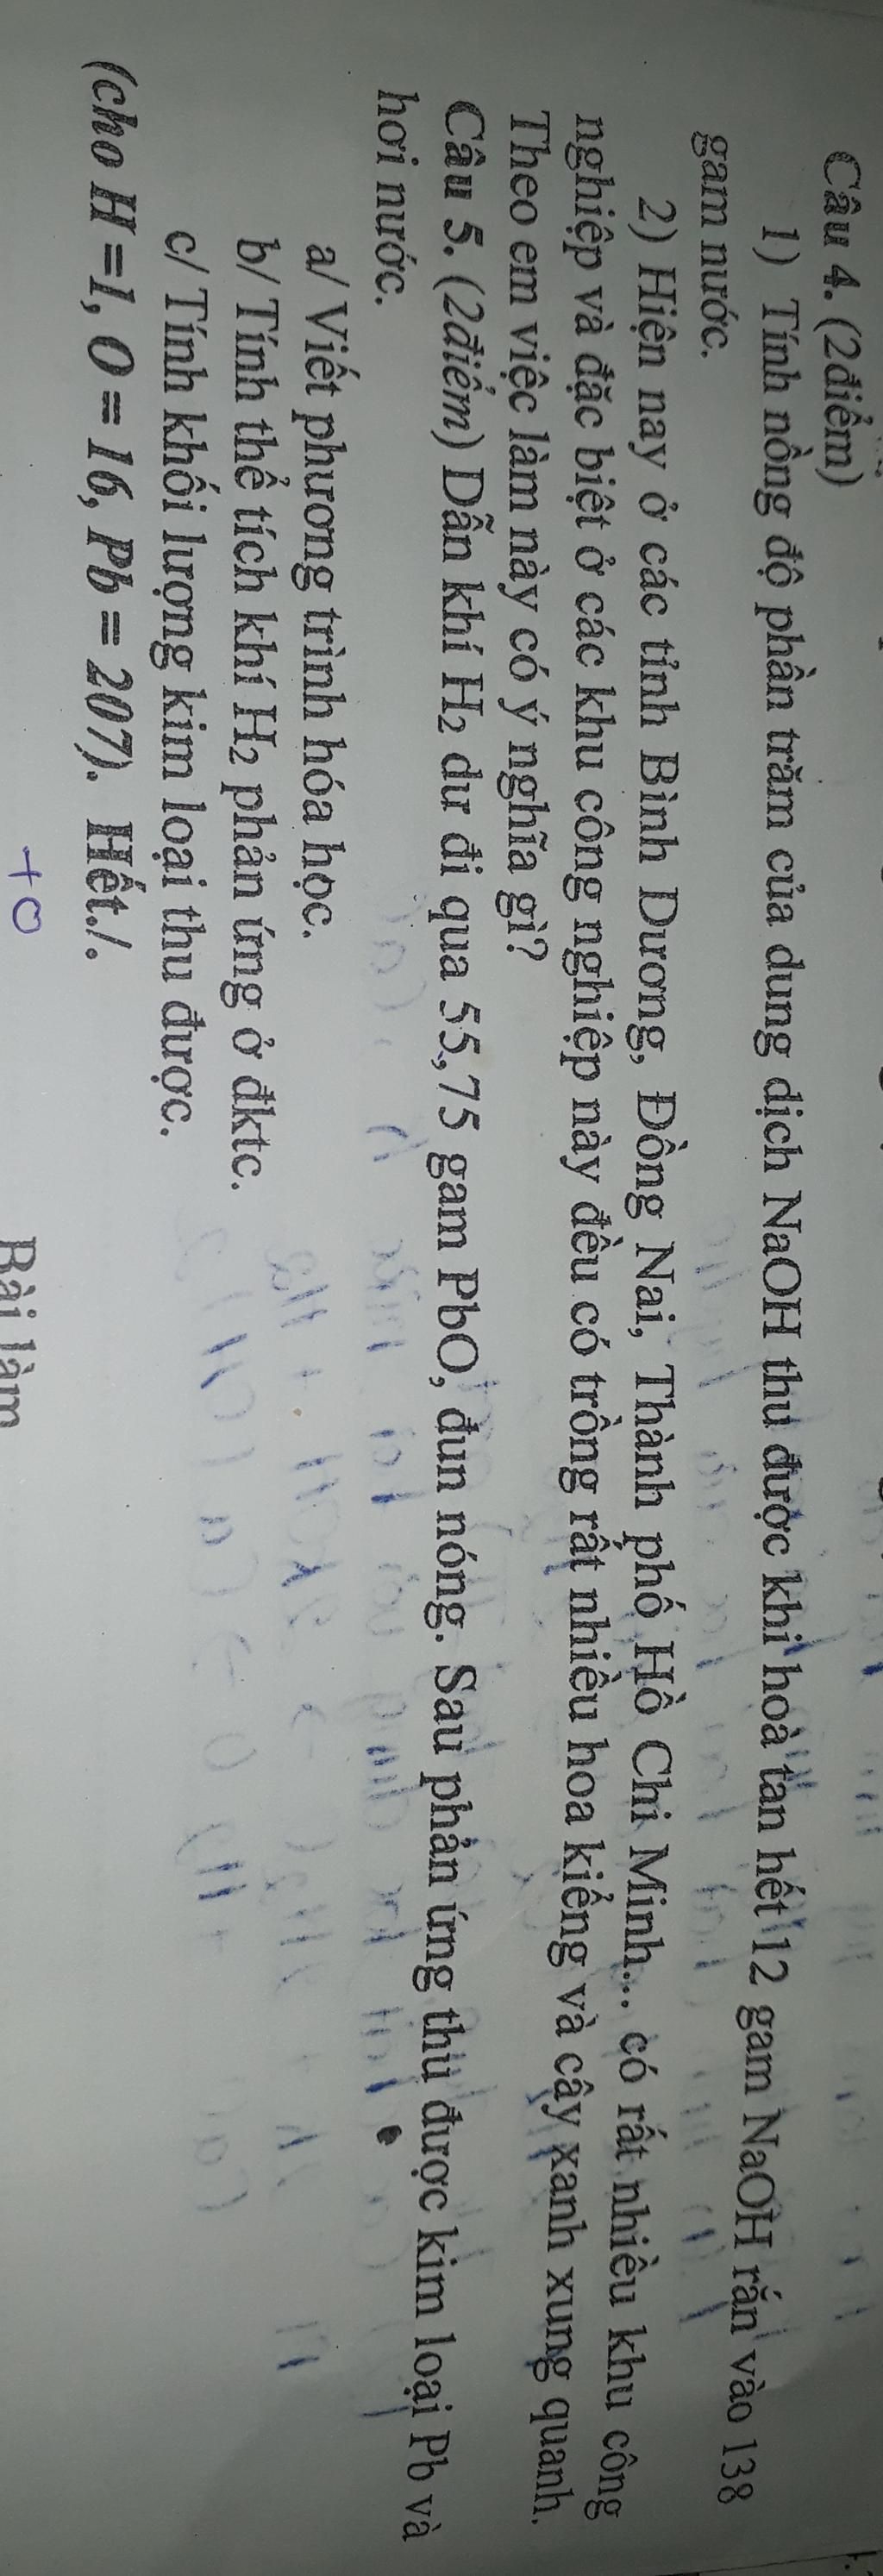 Câu 4. (2điểm)
1) Tính nồng độ phần trăm của dung dịch NaOH thu được khi hoà tan hết 12 gam NaOH rắn vào 138
gam nước.
2) Hiện nay ở các tỉnh Bình Dương, Đồng Nai, Thành phố Hồ Chi Minh... có rất nhiều khu công
nghiệp và đặc biệt ở các khu công nghiệp này đều có trồng rất nhiều hoa kiểng và cây xanh xung quanh.
Theo em việc làm này có ý nghĩa gì?
Câu 5. (2điểm) Dẫn khí H₂ dư đi qua 55,75 gam PbO, đun nóng. Sau phản ứng thu được kim loại Pb và
hơi nước.
a/ Viết phương trình hóa học.
b/ Tính thể tích khí H₂ phản ứng ở đktc.
c/ Tính khối lượng kim loại thu được.
(cho H =1, O = 16, Pb = 207). Hết./.
Bài làm
+0